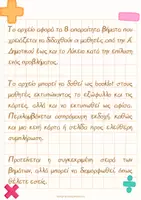 Το αρχείο αφορά τα 8 απαραίτητα βήματα που
χρειάζεται να διδαχθούν οι μαθητές από την Α
Δημοτικού έως και το Λύκειο κατά την επίλυση
ενός προβλήματος.
Το αρχείο μπορεί να δοθεί ως booklet στους
μαθητές εκτυπώνοντας το εξώφυλλο και τις
κάρτες, αλλά και να εκτυπωθεί ως αφίσα.
Περιλαμβάνεται ασπρόμαυρη εκδοχή, καθώς
και μια κενή κάρτα ή σελίδα προς ελεύθερη
συμπλήρωση.
Προτείνεται η συγκεκριμένη σειρά των
βημάτων, αλλά μπορεί να διαμορφωθεί όπως
θέλετε εσείς.